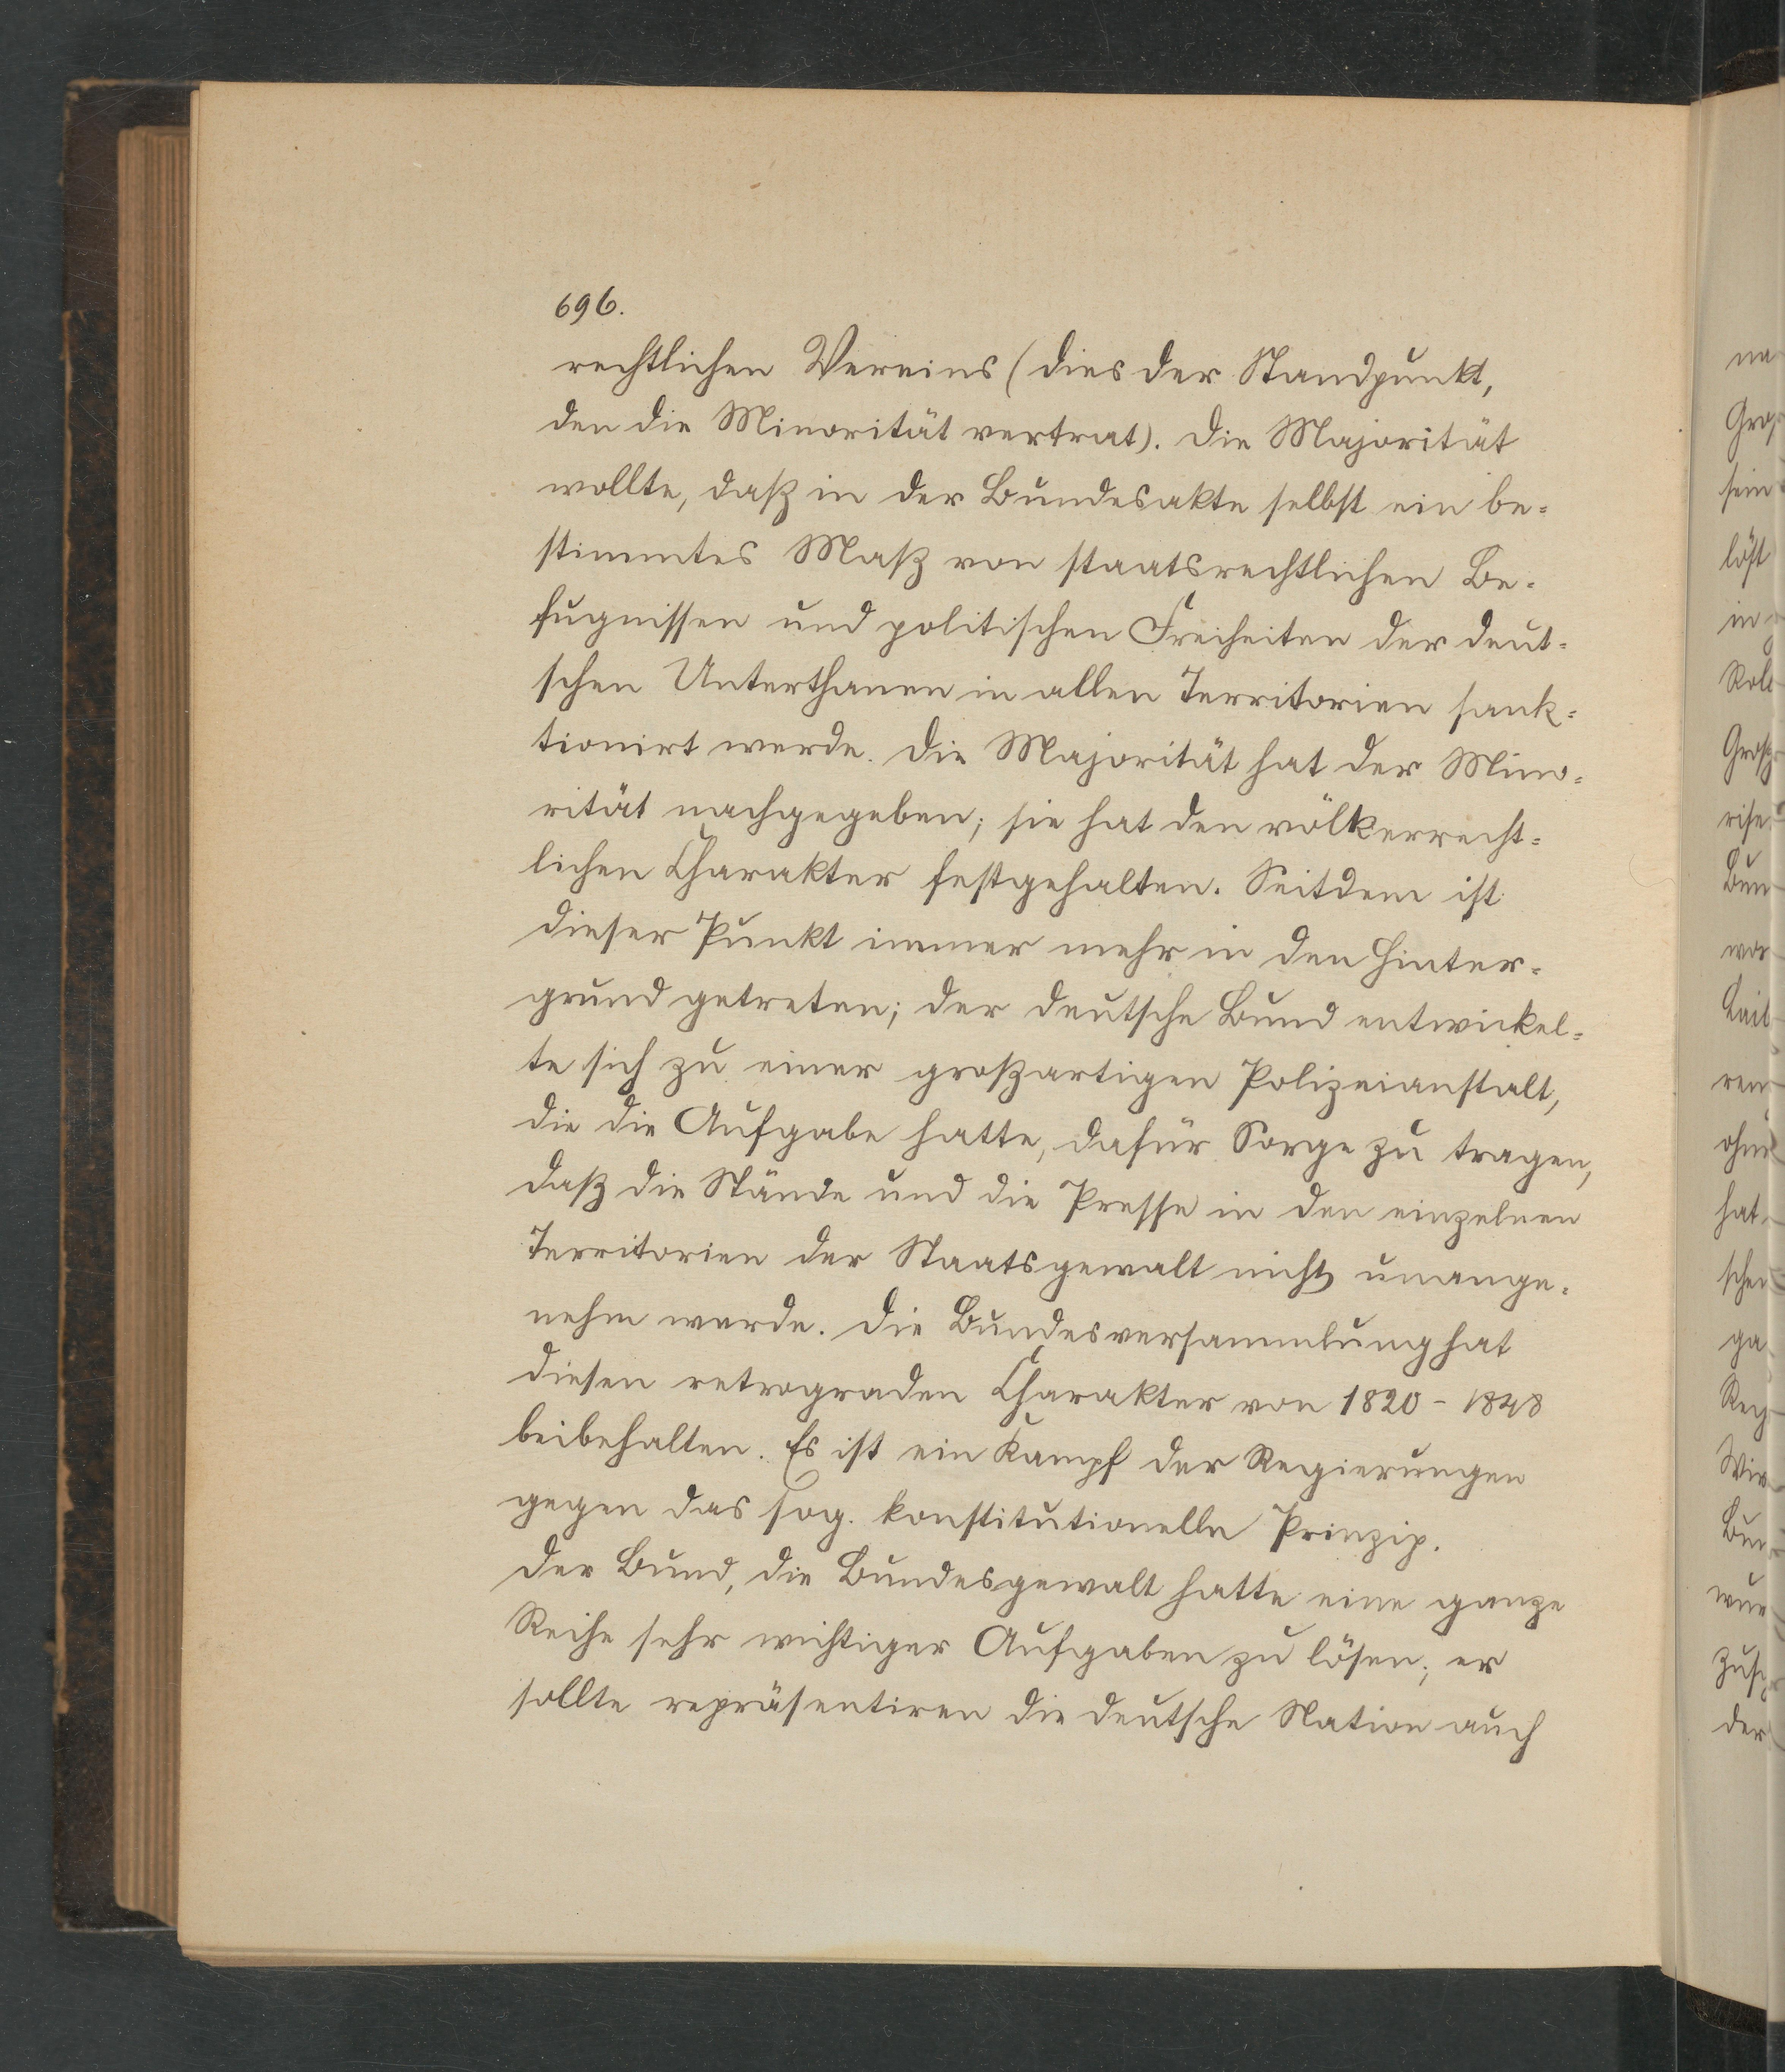 696.
rechtlichen Vereins (dies der Standpunkt,
den die Minorität vertrat). Die Majorität
wollte, daß in der Bundesakte selbst ein be-
stimmtes Maß von staatsrechtlichen Be-
fugnissen und politischen Freiheiten der deut-
schen Unterthanen in allen Territorien sank-
tionirt werde. Die Majorität hat der Mino-
rität nachgegeben; sie hat den völkerrecht-
lichen Charakter festgehalten. Seitdem ist
dieser Punkt immer mehr in den Hinter-
grund getreten; der deutsche Bund entwickel-
te sich zu einer großartigen Polizeianstalt,
die die Aufgabe hatte, dafür Sorge zu tragen,
daß die Stände und die Presse in den einzelnen
Territorien der Staatsgewalt nicht unange-
nehm werde. Die Bundesversammlung hat
diesen retrograden Charakter von 1820 - 1848
beibehalten. Es ist ein Kampf der Regierungen
gegen das sog. konstitutionelle Prinzip.
Der Bund, die Bundesgewalt hatte eine ganze
Reihe sehr wichtiger Aufgaben zu lösen; er
sollte repräsentiren die deutsche Nation auch